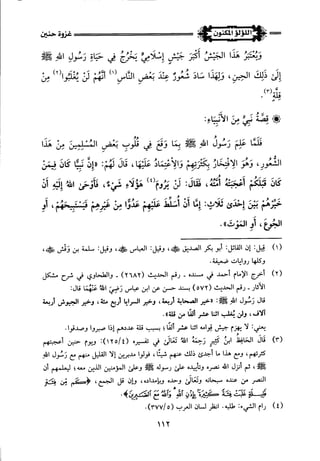 اللؤلؤ المكنون
غزوة حنين
وَيُعْتَبَرُ هَذَا الجَيْشُ أَكْبَرَ جَيْشٍ إِسْلَامِيٍّ يَخْرُجُ فِي حَيَاةِ رَسُولِ اللهِ ﷺ
إِلَى ذَلِكَ الحِينِ، وَلِهَذَا سَادَ شُعُورٌ عِنْدَ بَعْضِ النَّاسِ(١) أَنَّهُمْ لَنْ يُغْلَبُوا(٢) مِنْ
قِلَّةٍ(٣).
قِصَّةُ نَبِيٍّ مِنَ الأَنْبِيَاءِ:
فَلَمَّا عَلِمَ رَسُولُ اللهِ ﷺ بِمَا وَقَعَ فِي قُلُوبِ بَعْضِ المُسْلِمِينَ مِنْ هَذَا
الشُّعُورِ، وَهُوَ الِافْتِخَارُ بِكَثْرَتِهِمْ وَالِاعْتِمَادُ عَلَيْهَا، قَالَ لَهُمْ: «إِنَّ نَبِيًّا كَانَ فِيمَنْ
كَانَ قَبْلَكُمْ أَعْجَبَتْهُ أُمَّتُهُ، فَقَالَ: لَنْ يَرُومَ(٤) هَؤُلَاءِ شَيْءٌ، فَأَوْحَى اللهُ إِلَيْهِ أَنْ
خَيِّرْهُمْ بَيْنَ إِحْدَى ثَلَاثٍ: إِمَّا أَنْ أُسَلِّطَ عَلَيْهِمْ عَدُوًّا مِنْ غَيْرِهِمْ فَيَسْتَبِيحَهُمْ، أَوِ
الجُوعَ، أَوِ المَوْتَ».
(١) قيل: إن القائل: أبو بكر الصديق ﷺ، وقيل: العباس ﷺ، وقيل: سلمة بن وقش ﷺ،
وكلها روايات ضعيفة.
(٢) أخرج الإمام أحمد في مسنده - رقم الحديث (٢٦٨٢) - والطحاوي في شرح مشكل
الآثار - رقم الحديث (٥٧٢) بسند حسن عن ابن عباس رضي الله عنهما قال:
قال رسول الله ﷺ: «خير الصحابة أربعة، وخير السرايا أربع مئة، وخير الجيوش أربعة
آلاف، ولن يُغلب اثنا عشر ألفًا من قلة».
يعني: لا يهزم جيش قوامه اثنا عشر ألفًا؛ بسبب قلة عددهم إذا صبروا وصدقوا.
(٣) قال الحافظ ابن كثير رحمه الله تعالى في تفسيره (١٢٥/٤): ويوم حنين أعجبتهم
كثرتهم، ومع هذا ما أجدى ذلك عنهم شيئًا، فولوا مدبرين إلا القليل منهم مع رسول الله
ﷺ، ثم أنزل الله نصره وتأييده على رسوله ﷺ وعلى المؤمنين الذين معه؛ ليعلمهم أن
النصر من عنده سبحانه وتعالى وحده وبإمداده، وإن قل الجمع، ﴿كَم مِّن فِئَةٍ
قَلِيلَةٍ غَلَبَتْ فِئَةً كَثِيرَةً بِإِذْنِ اللَّهِ وَاللَّهُ مَعَ الصَّابِرِينَ﴾.
(٤) رام الشيء: طلبه. انظر لسان العرب (٣٧٧/٥).
١١٢